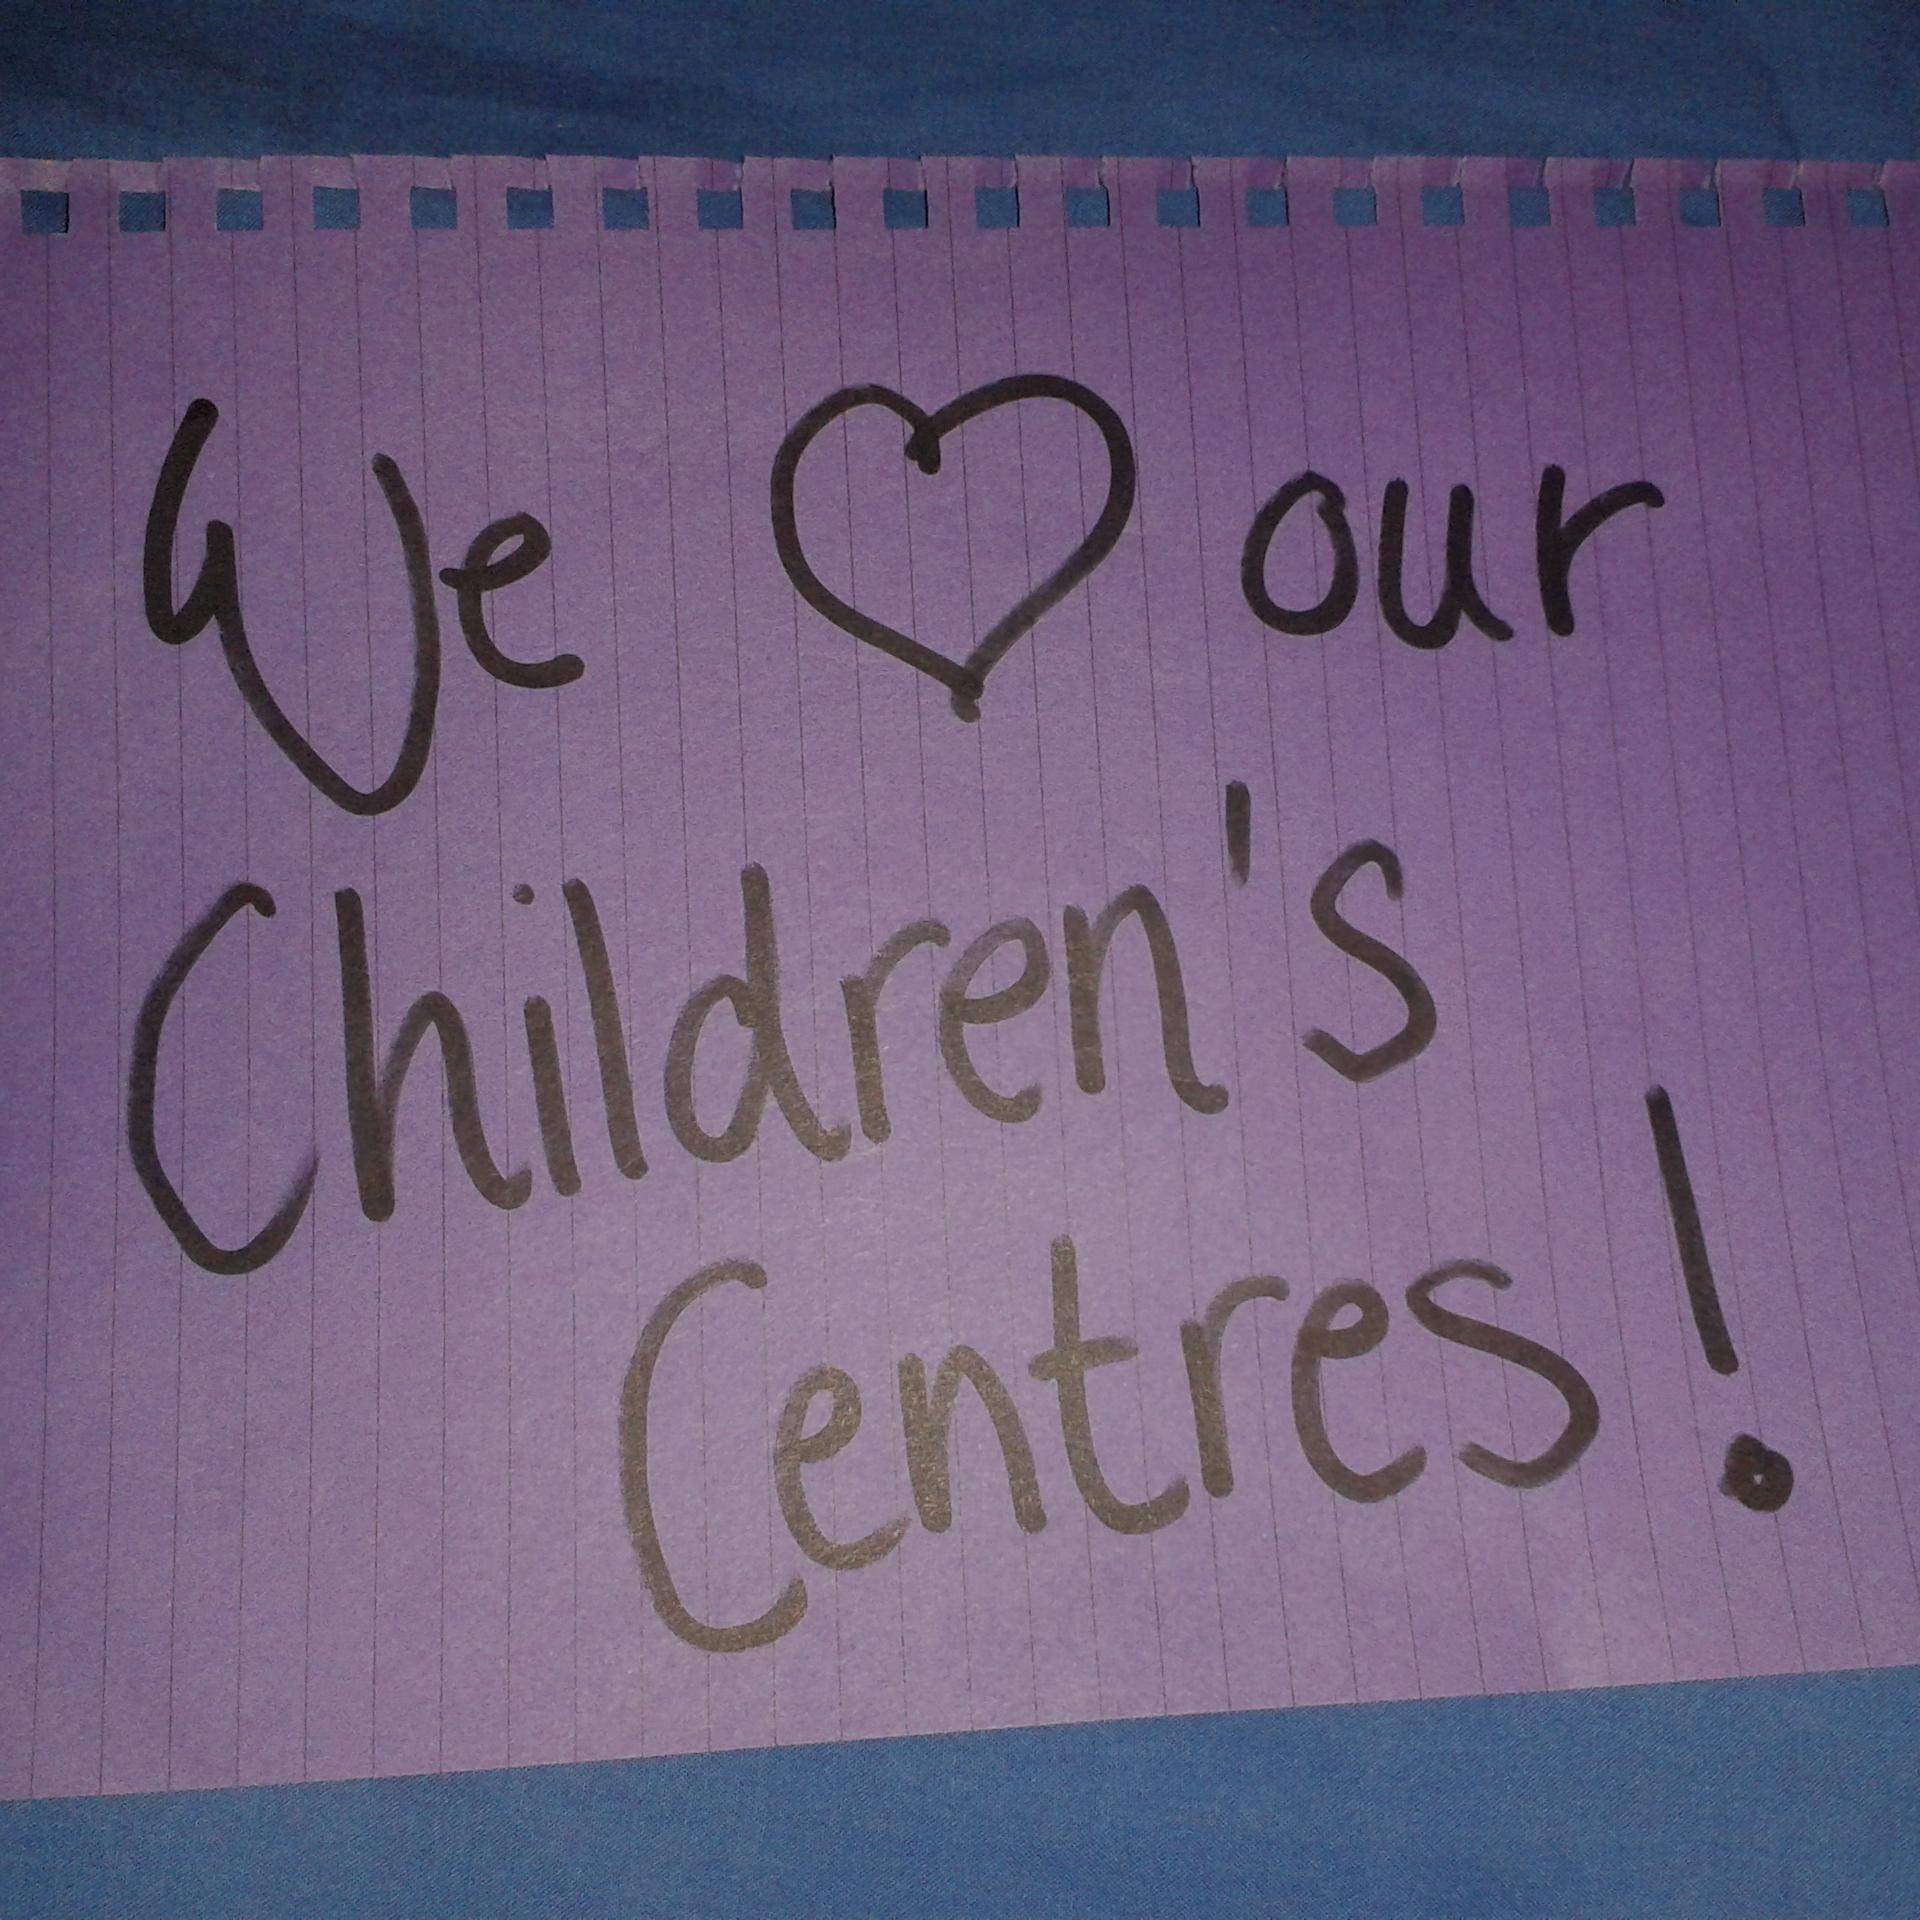 We ♡ our
Children's
Centres!